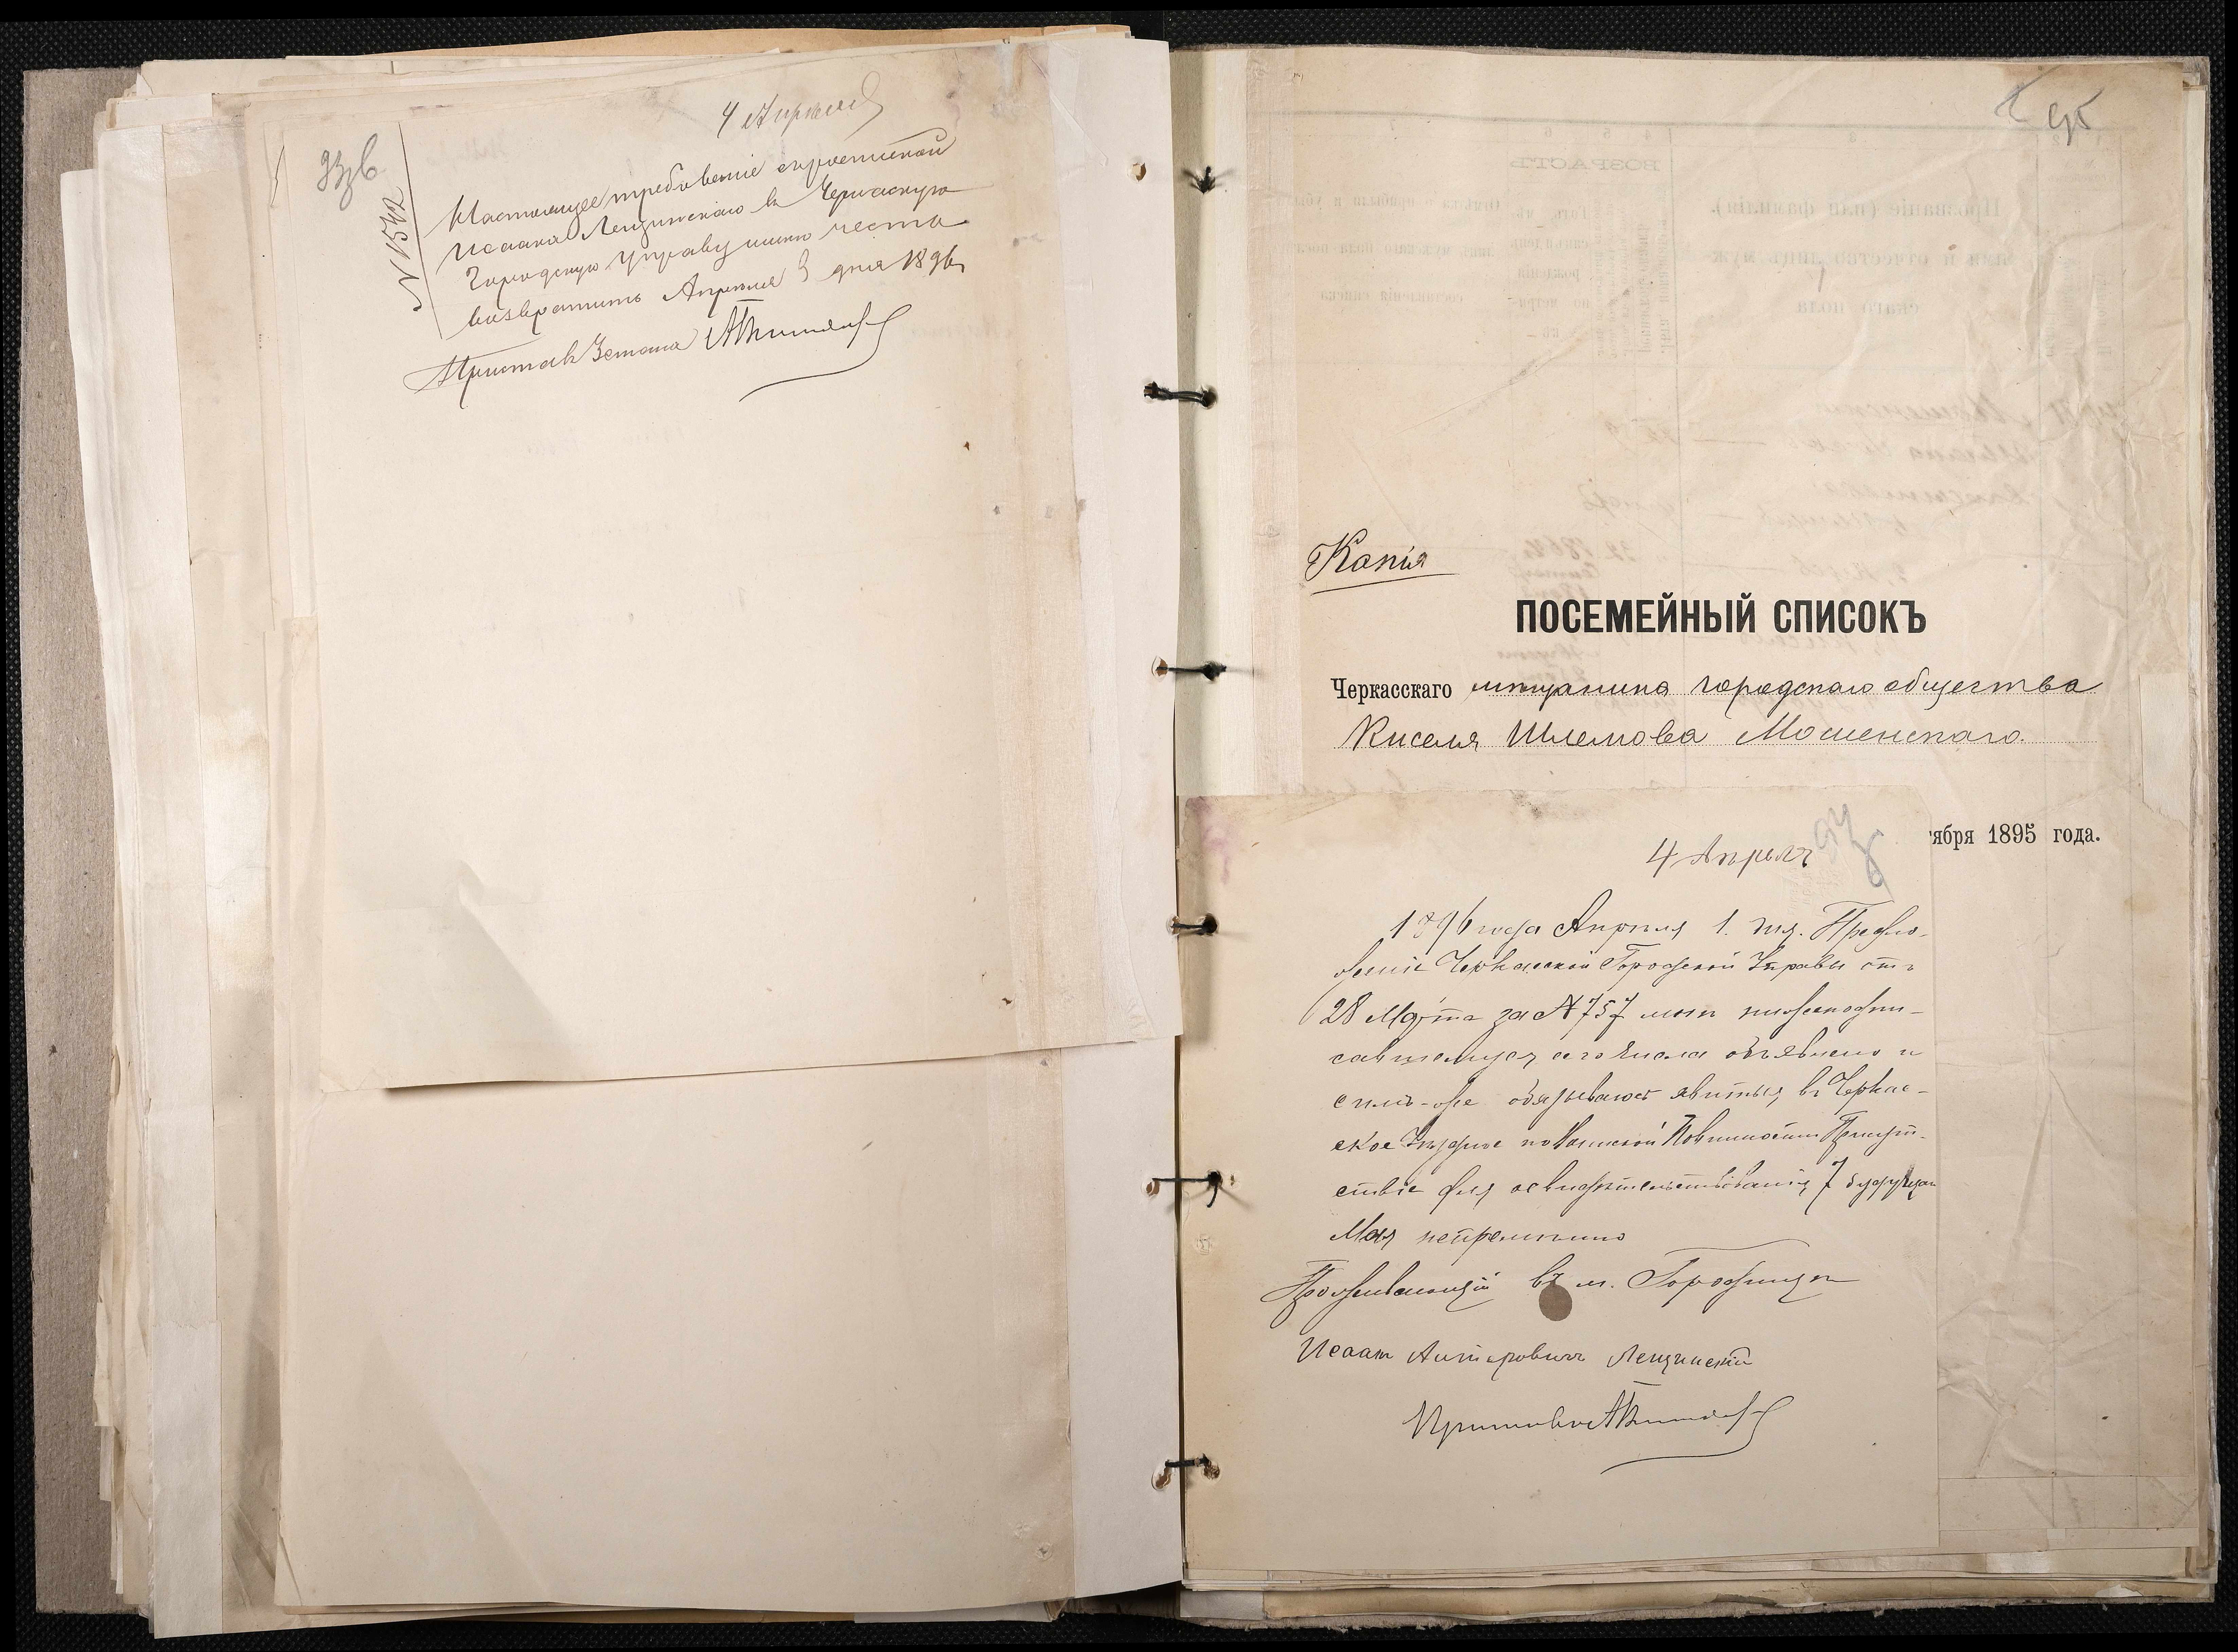 4 Апреля
93 в
№ 1542
Настоящее требованіе съ роспиской
Исаака Лещинскаго въ Черкаскую
Городскую Управу имею честь
возвратить Апреля 3 дня 1896 г.
Приставъ 3 стана
95
Копія
ПОСЕМЕЙНЫЙ СПИСОКЪ
Черкасскаго мѣщанина городскаго общества
Киселя Шлемова Мошенскаго.
тября 1895 года.
4 Апреля
1896 года Апрѣля 1. дня. Предло-
женіе Черкасской Городской Управы отъ
28 Марта за № 757 мнѣ нижеподпи-
савшемуся сего числа объявлено и
симъ-же обязываюсь явиться въ Черкас-
ское Уѣздное по Воинской Повинности Присут-
ствіе для освидѣтельствованія 7 будущаго
Мая непремѣнно
Проживающій въ м. Городищѣ
Исаакъ Лещинскій
Приставъ